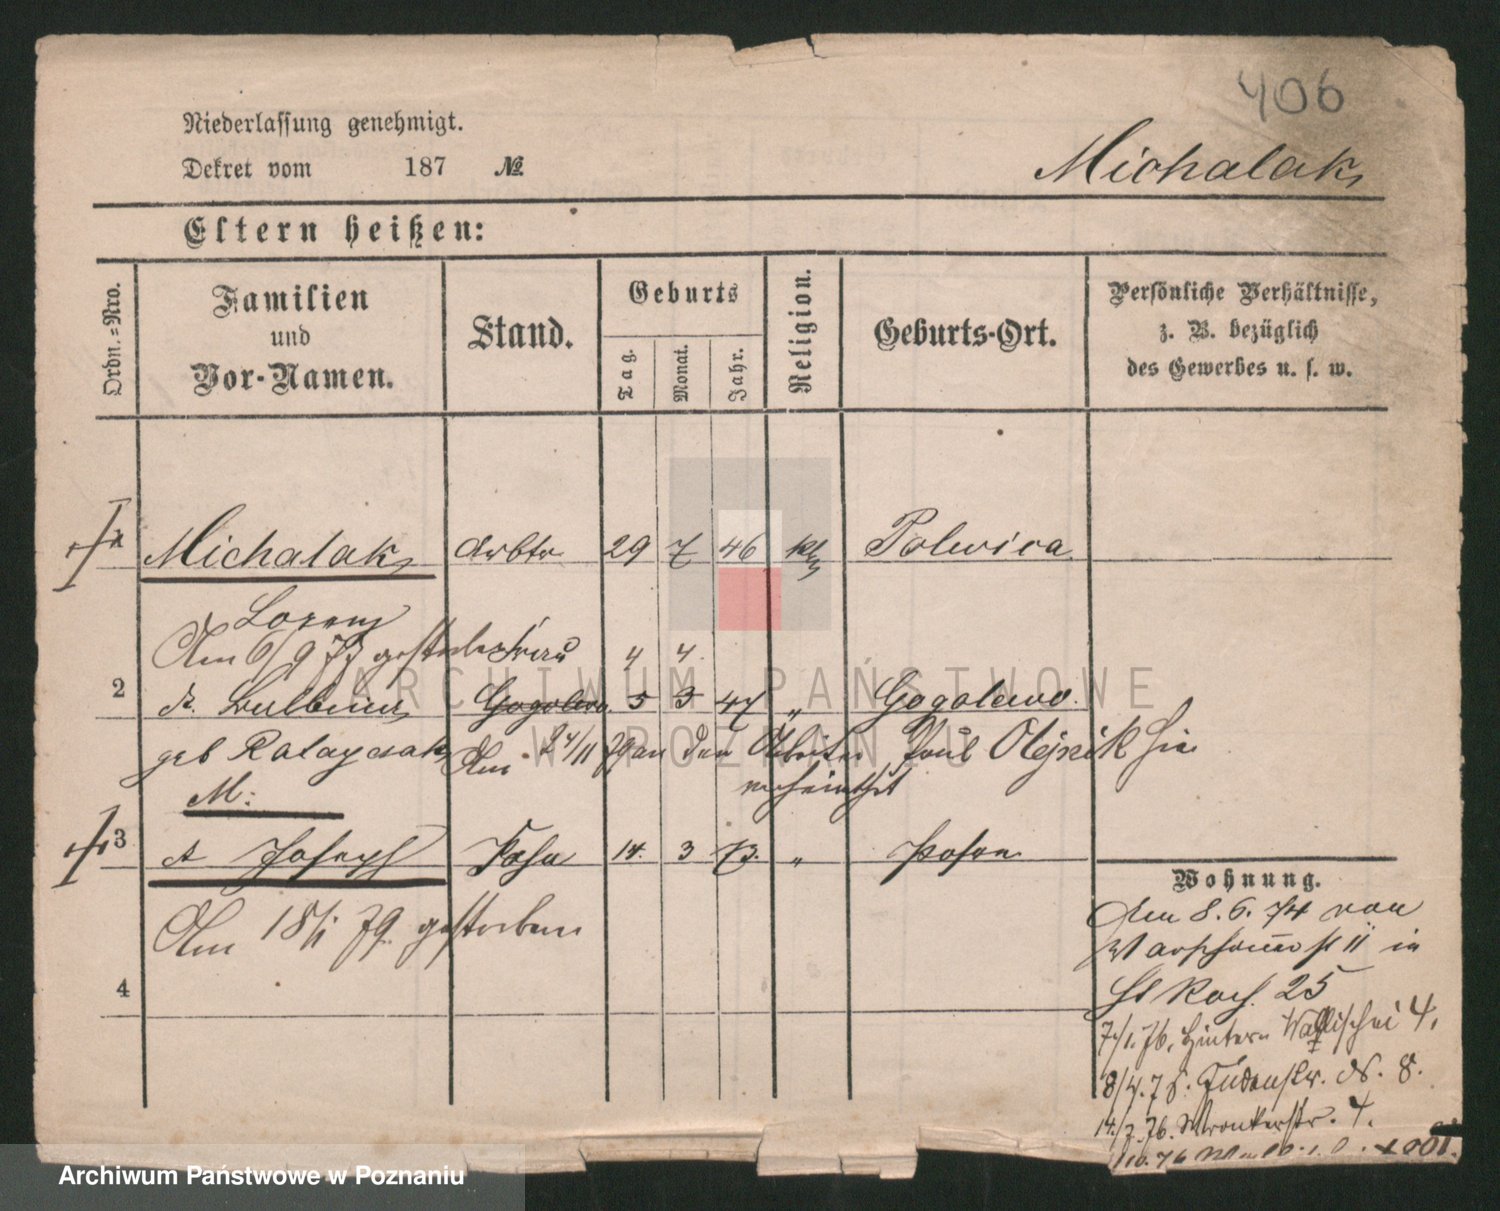 406
Niederlassung genehmigt.
Dekret vom 187 №
Michalak
Eltern heißen:
Ordn.=Nro.
Familien
und
Vor-Namen.
Stand.
Geburts
Tag.
Monat.
Jahr.
Religion.
Geburts-Ort.
Persönliche Verhältnisse,
z. B. bezüglich
des Gewerbes u. s. w.
Michalak Arbtr 29 7 46 kth Polwica
Lorenz
Am 6/9 77 gestorben Frau 4 4.
2 Gogolewo 5 3 47 „ Gogolewo.
geb Ratayczak Am 24/11 79 an den Arbeiter Paul Olejnik hier
verheirathet
M:
3 Joseph Posen 14. 3 73. „ Posen
Am 18/1 79 gestorben
4
Wohnung.
Am 8. 6. 74 von
Warschauerst 11 in
St Roch. 25
7./1. 76. Hintern Wallischei 4.
8/4. 76. Judenstr. 8.
14./7. 76. Wronkerstr. 4.
ARCHIWUM PAŃSTWOWE
W POZNANIU
Archiwum Państwowe w Poznaniu